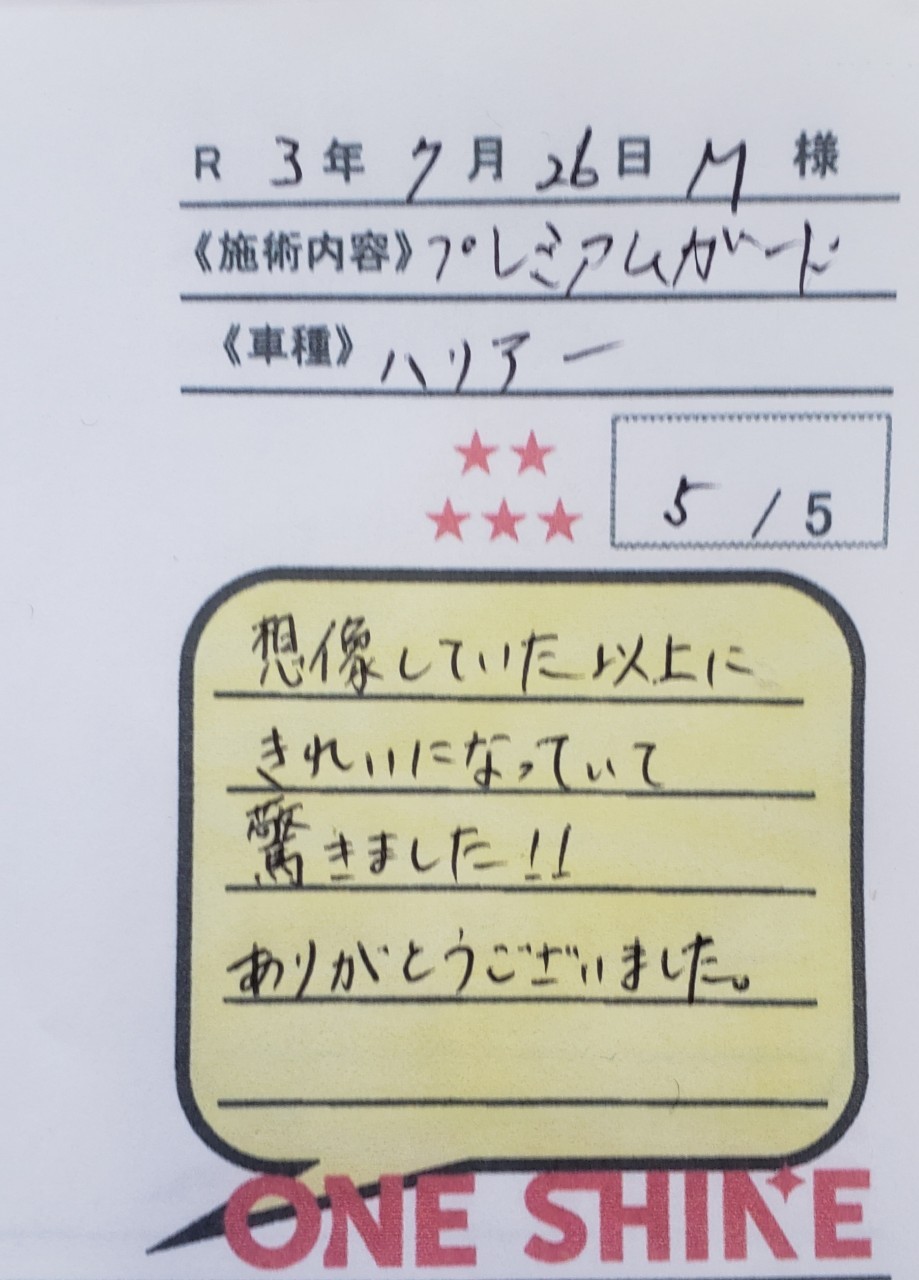 R 3年 7月 26日 M 様
《施術内容》プレミアムガード
《車種》ハリアー
5 / 5
想像していた以上に
きれいになっていて
驚きました!!
ありがとうございました。
ONE SHINE